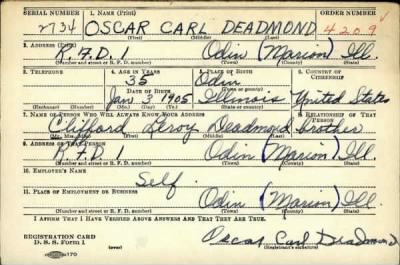 SERIAL NUMBER 1. NAME (Print) ORDER NUMBER
2734 OSCAR CARL DEADMOND 4209
(First) (Middle) (Last)
2. ADDRESS (Print)
R.F.D. 1 Odin (Marion) Ill.
(Number and street or R. F. D. number) (Town) (County) (State)
3. TELEPHONE 4. AGE IN YEARS 5. PLACE OF BIRTH 6. COUNTRY OF CITIZENSHIP
35 Odin
DATE OF BIRTH (Town or county)
Jan 2 1905 Illinois United States
(Exchange) (Number) (Mo.) (Day) (Yr.) (State or country)
7. NAME OF PERSON WHO WILL ALWAYS KNOW YOUR ADDRESS 8. RELATIONSHIP OF THAT PERSON
Clifford Leroy Deadmond brother
(Mr., Mrs., Miss) (First) (Middle) (Last)
9. ADDRESS OF THAT PERSON
R.F.D. 1 Odin (Marion) Ill.
(Number and street or R. F. D. number) (Town) (County) (State)
10. EMPLOYER'S NAME
Self
11. PLACE OF EMPLOYMENT OR BUSINESS
Odin (Marion) Ill.
(Number and street or R. F. D. number) (Town) (County) (State)
I AFFIRM THAT I HAVE VERIFIED ABOVE ANSWERS AND THAT THEY ARE TRUE.
REGISTRATION CARD
D. S. S. Form 1 (over) Oscar Carl Deadmond
(Registrant's signature)